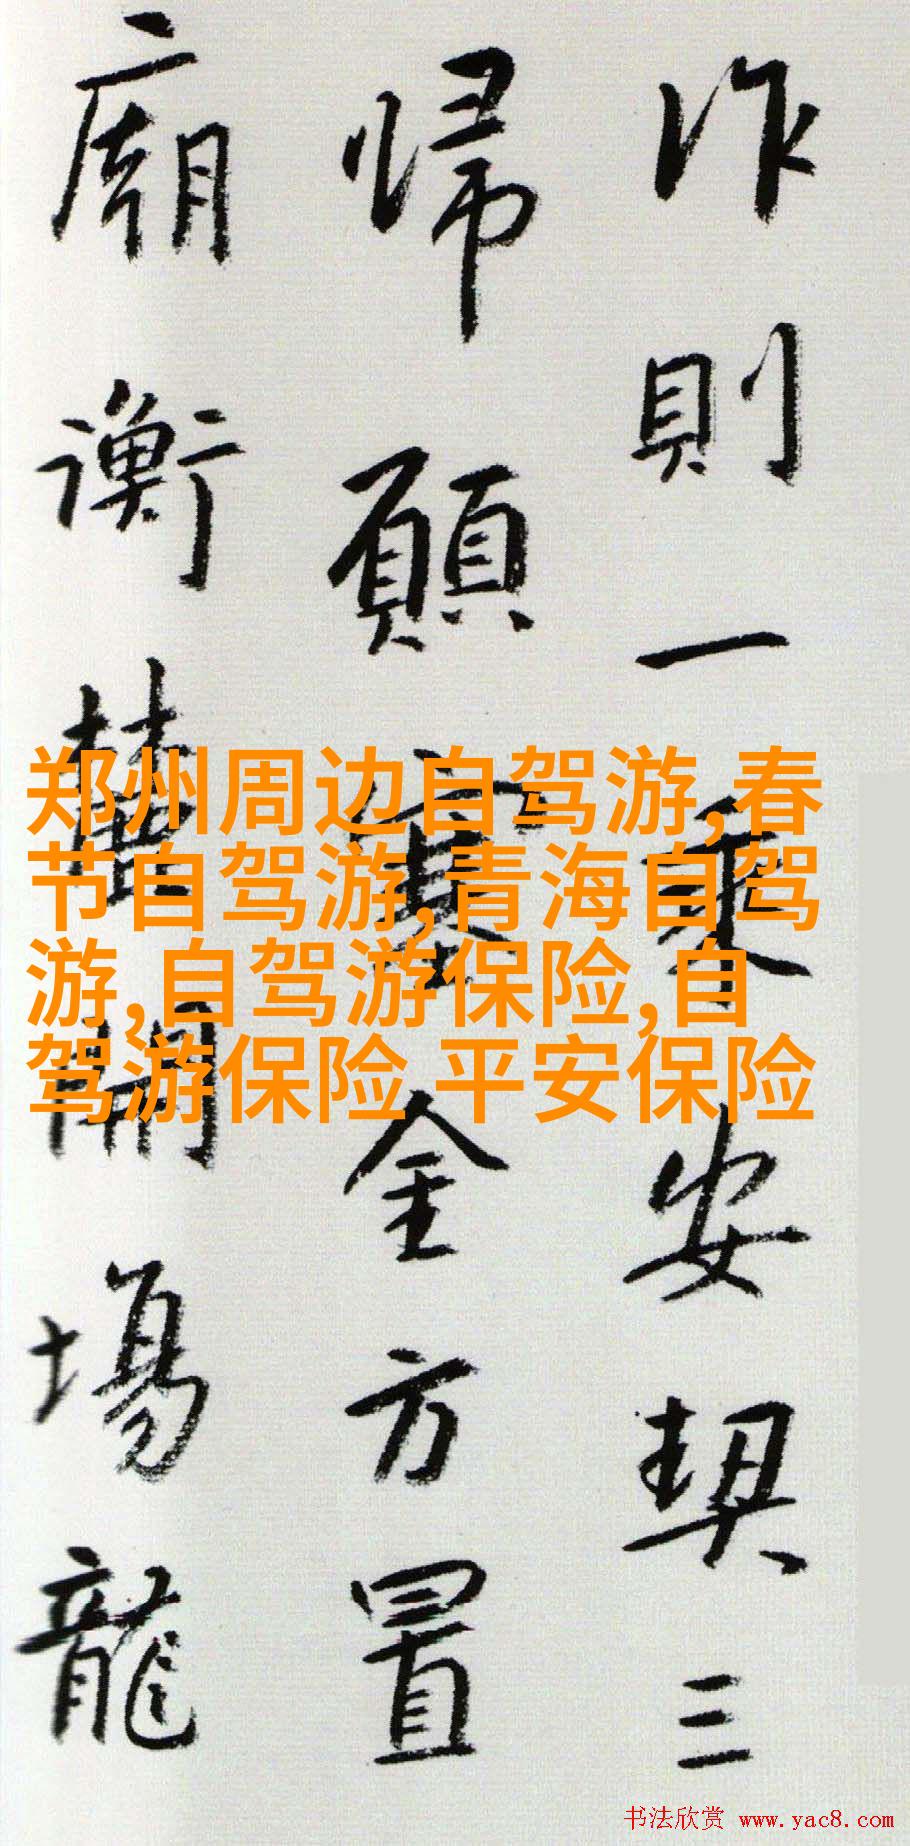 作則一乘安契三
歸願塞金方置
廟衡麓開場龍
郑州周边自驾游,春
节自驾游,青海自驾
游,自驾游保险,自
驾游保险 平安保险
书法欣赏 www.yac8.com